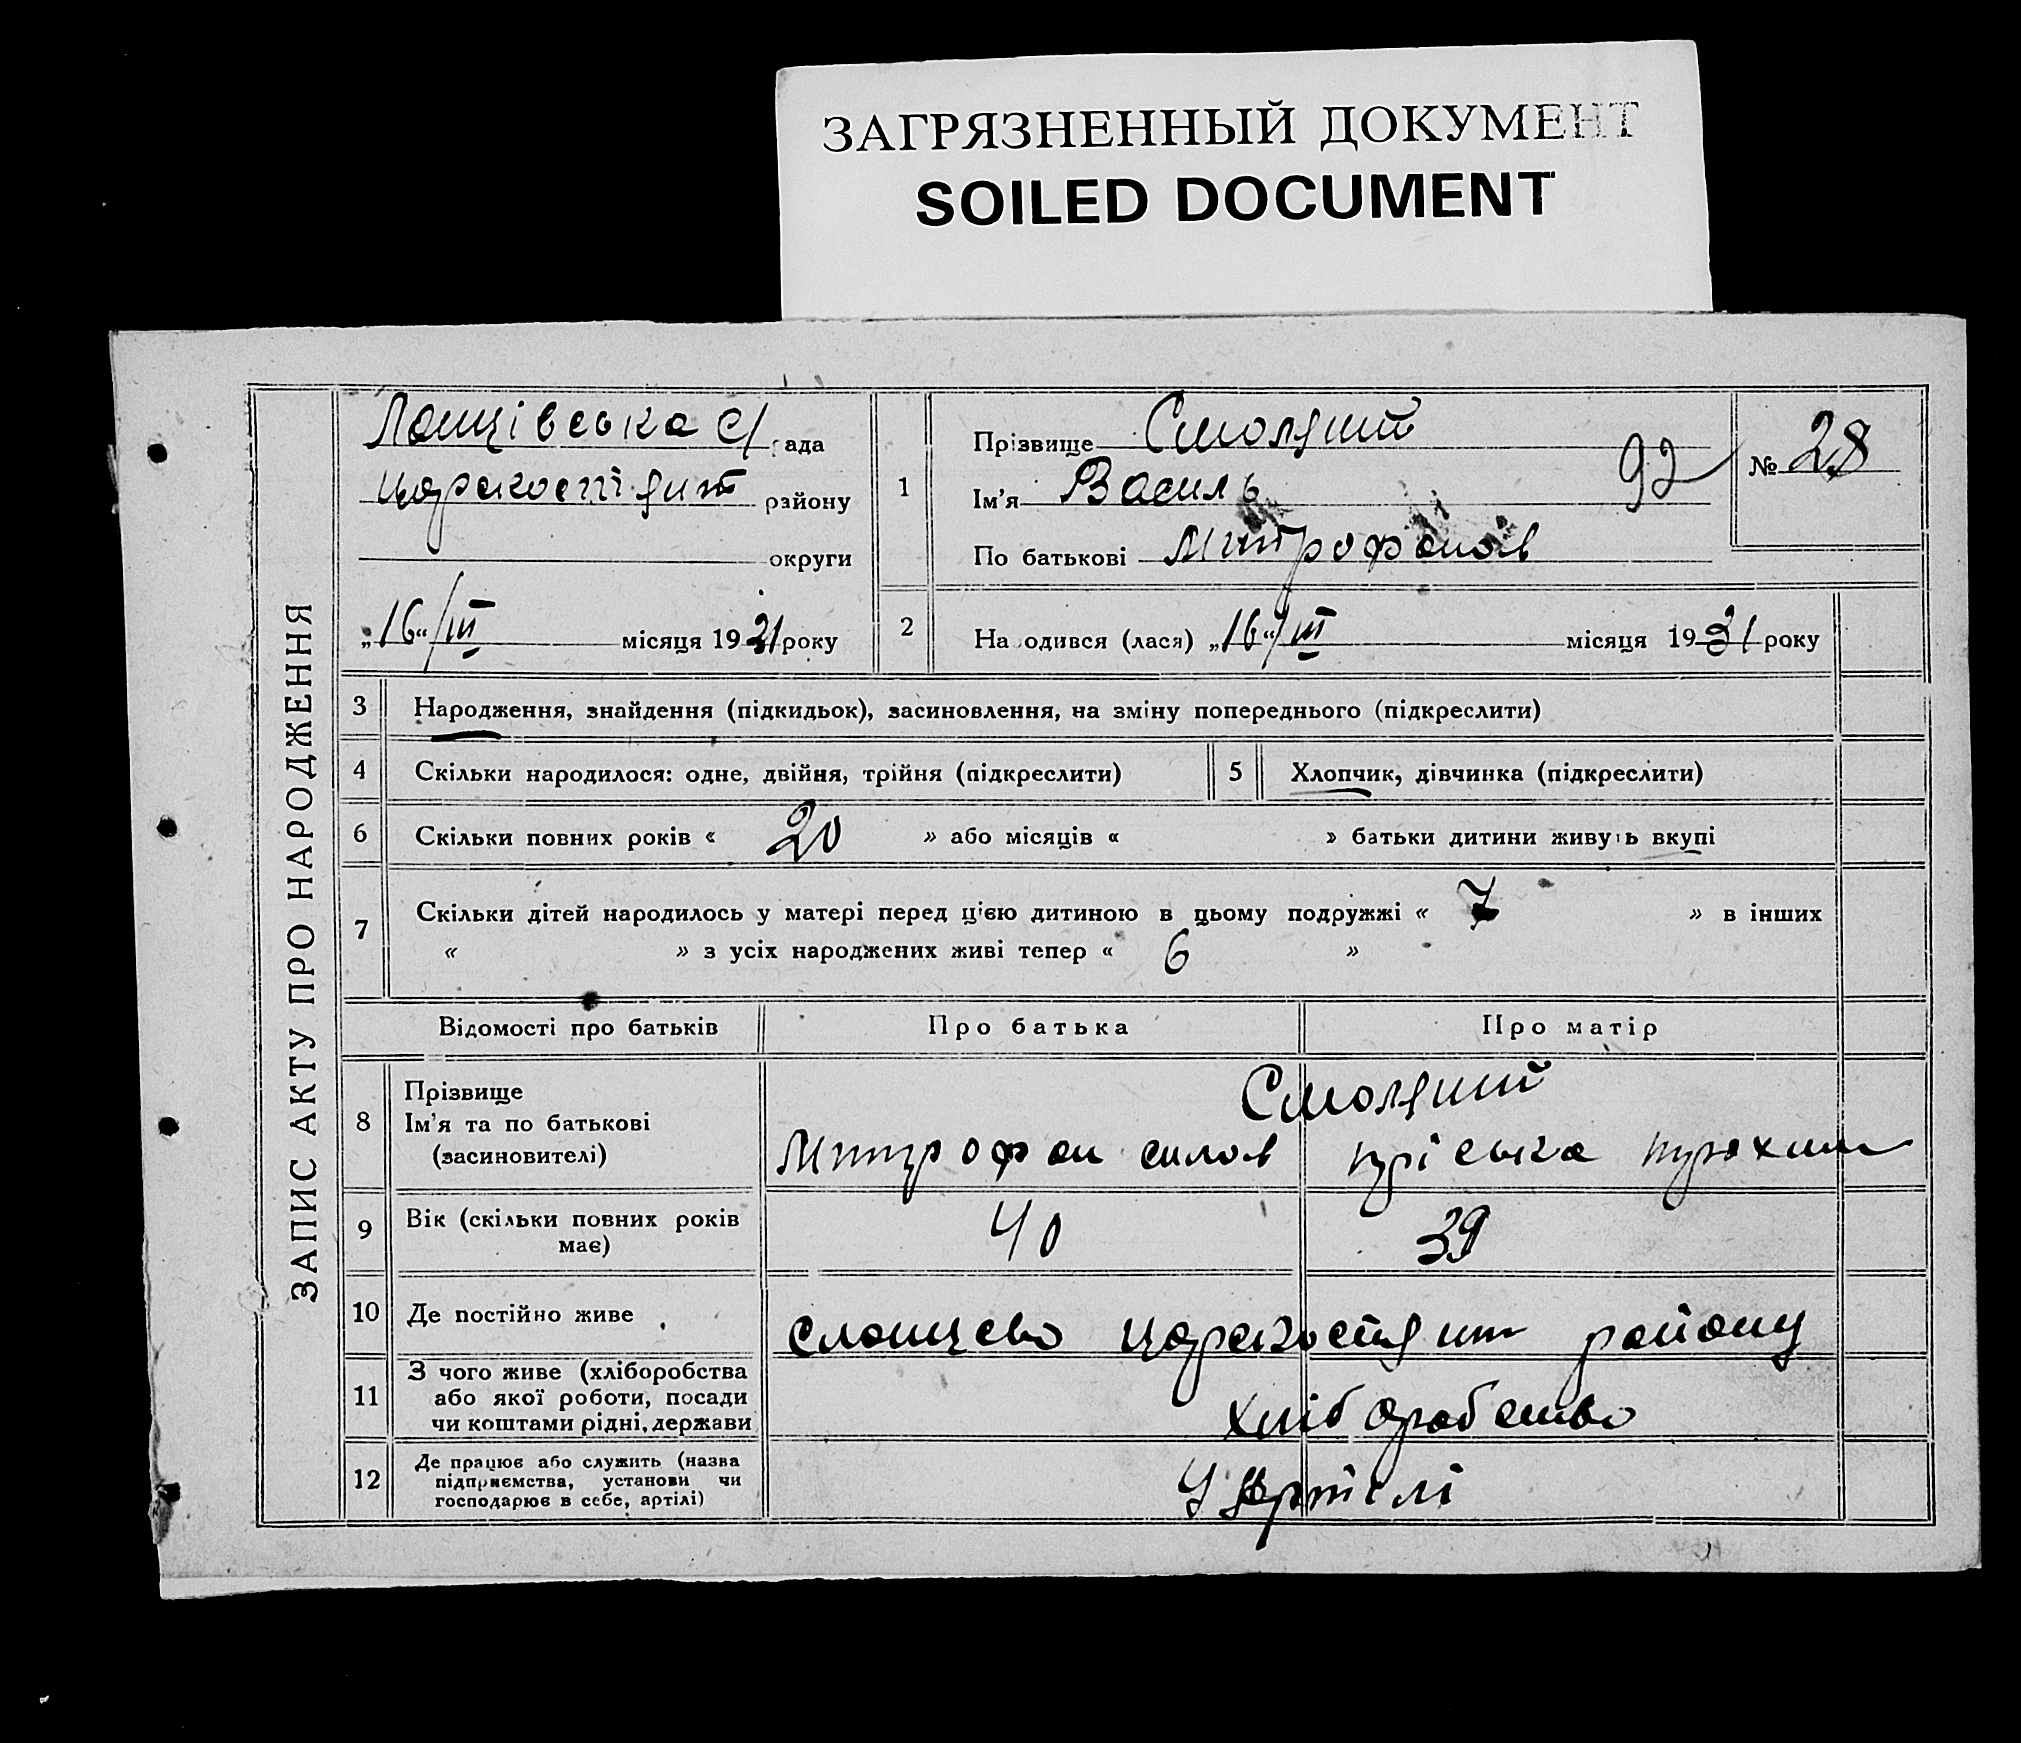 ЗАГРЯЗНЕННЫЙ ДОКУМЕНТ
SOILED DOCUMENT
ЗАПИС АКТУ ПРО НАРОДЖЕННЯ
рада
району
округи
„16“/III місяця 1931 року
1
Прізвище
Ім'я Василь
92
По батькові Митрофанов
№ 28
2 Народився (лася) „16“/III місяця 1931 року
3 Народження, знайдення (підкидьок), засиновлення, на зміну попереднього (підкреслити)
4 Скільки народилося: одне, двійня, трійня (підкреслити) 5 Хлопчик, дівчинка (підкреслити)
6 Скільки повних років « 20 » або місяців « » батьки дитини живуть вкупі
7 Скільки дітей народилось у матері перед цією дитиною в цьому подружжі « 7 » в інших
« » з усіх народжених живі тепер « 6 »
Відомості про батьків Про батька Про матір
8 Прізвище
Ім'я та по батькові
(засиновителі)
Митрофан силов пріська
9 Вік (скільки повних років
має)
40 39
10 Де постійно живе
району
11 З чого живе (хліборобства
або якої роботи, посади
чи коштами рідні, держави
хліборобство
12 Де працює або служить (назва
підприємства, установи чи
господарює в себе, артілі)
У артілі